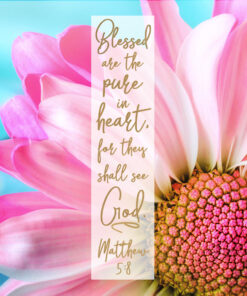 Blessed
are the
pure
in
heart,
for they
shall see
God.
Matthew
5:8